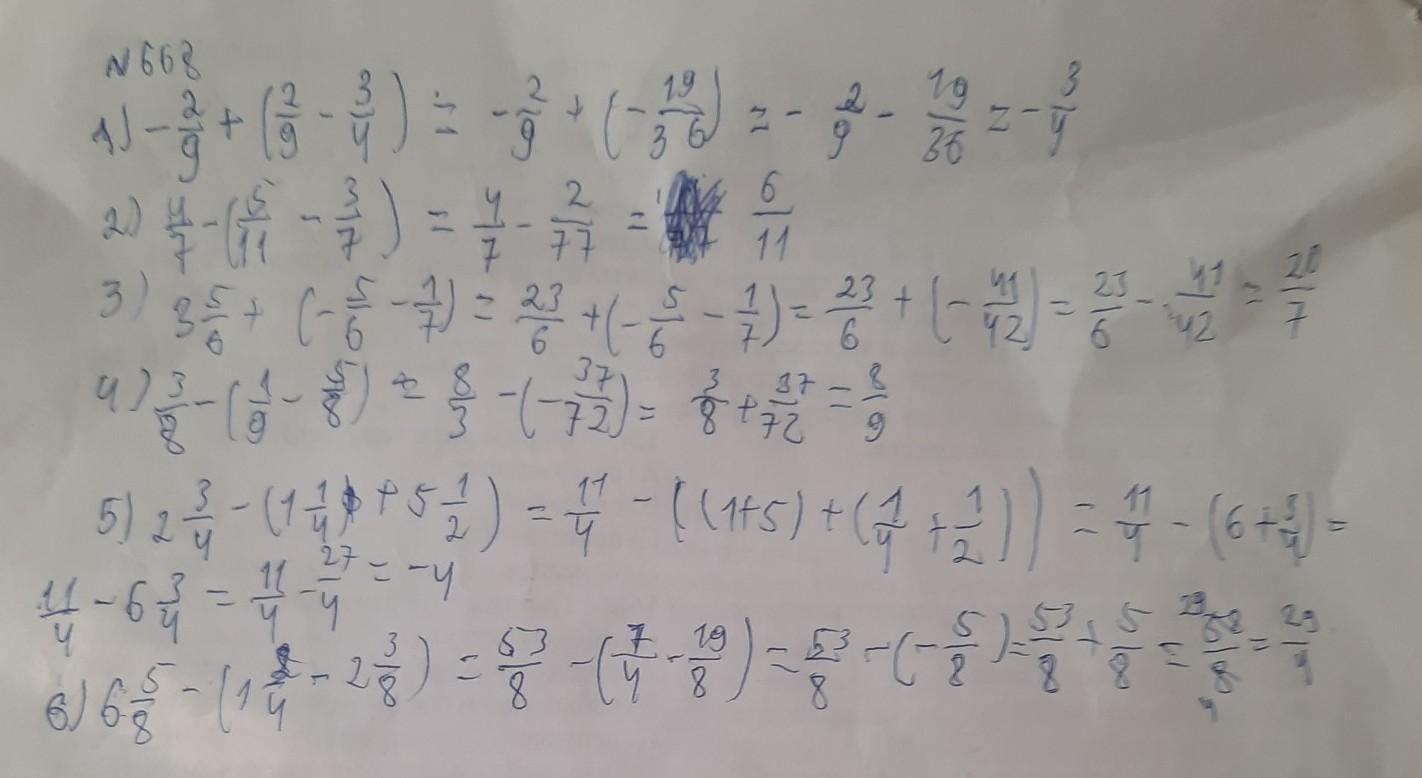 №668
1) -2/9 + (2/9 - 3/4) = -2/9 + (-19/36) = -2/9 - 19/36 = -3/4
2) 4/7 - (5/11 - 3/7) = 4/7 - 2/77 = 6/11
3) 3 5/6 + (-5/6 - 1/7) = 23/6 + (-5/6 - 1/7) = 23/6 + (-41/42) = 23/6 - 41/42 = 20/7
4) 3/8 - (1/9 - 5/8) = 8/3 - (-37/72) = 3/8 + 37/72 = 8/9
5) 2 3/4 - (1 1/4 + 5 1/2) = 11/4 - ((1+5) + (1/4 + 1/2)) = 11/4 - (6 + 3/4) =
11/4 - 6 3/4 = 11/4 - 27/4 = -4
6) 6 5/8 - (1 /4 - 2 3/8) = 53/8 - (7/4 - 19/8) = 53/8 - (-5/8) = 53/8 + 5/8 = 29 58/8 4 = 29/4